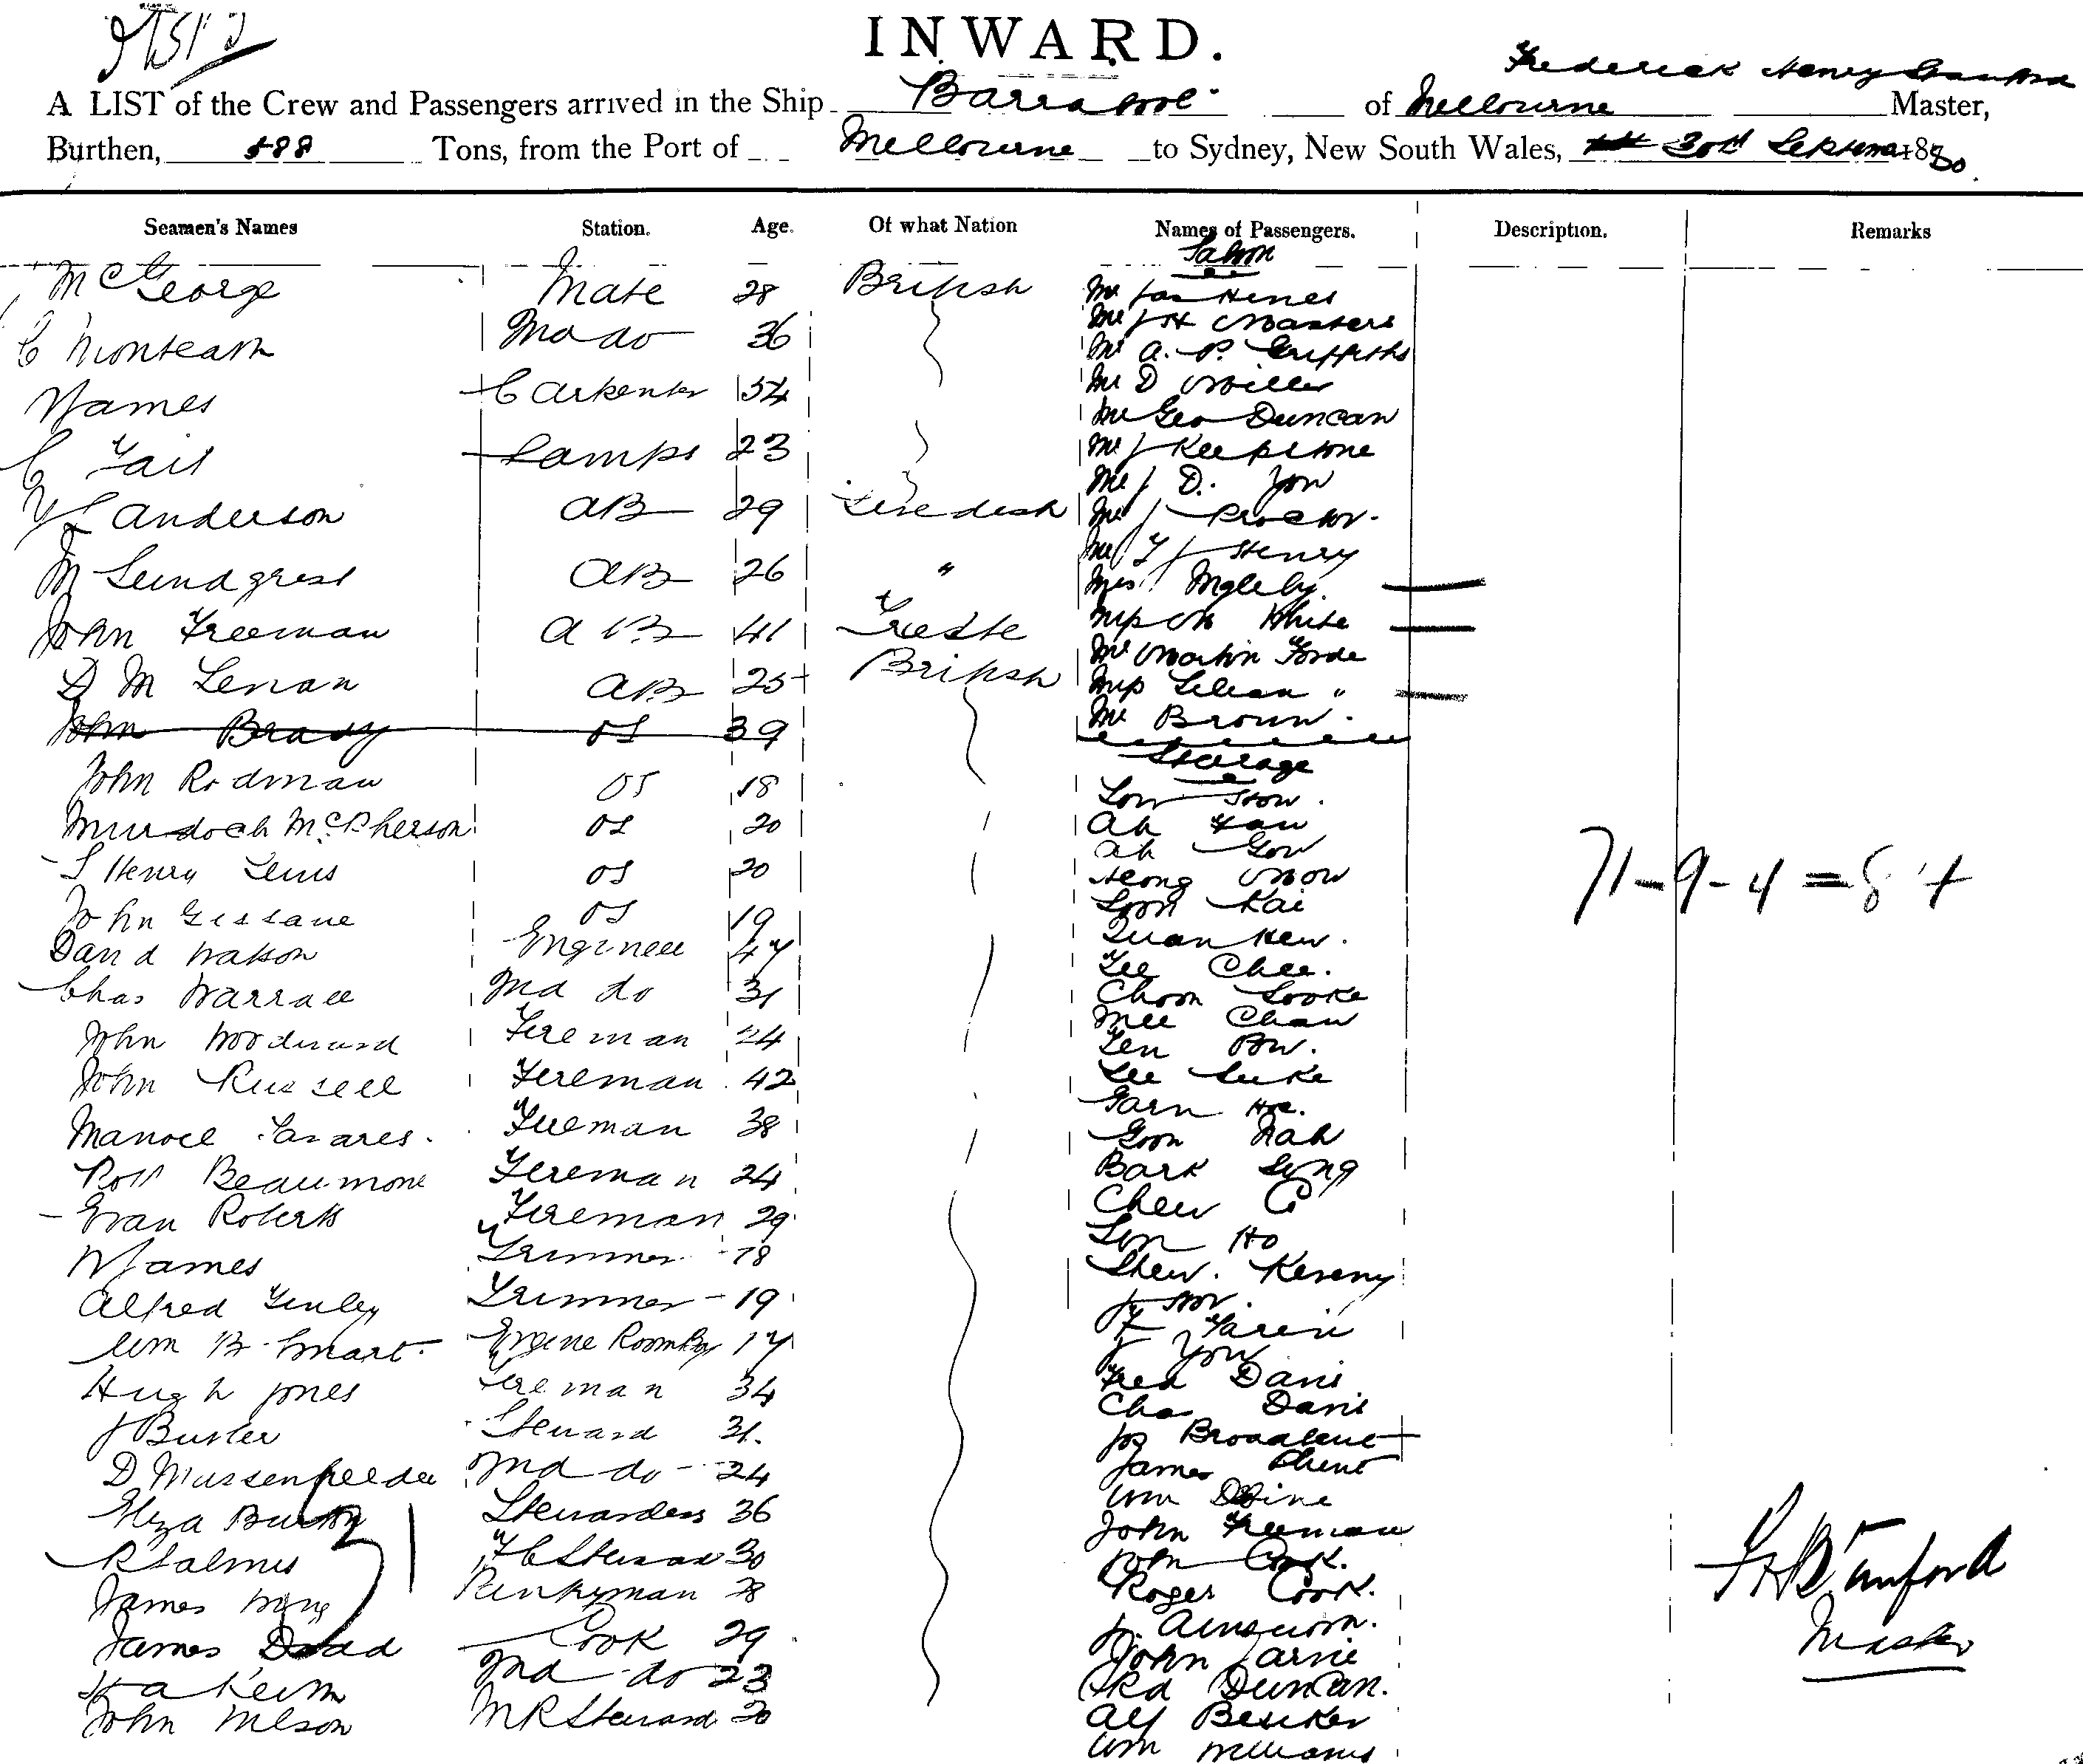 INWARD.
Frederick Henry
A LIST of the Crew and Passengers arrived in the Ship Barrabool of Melbourne Master,
Burthen, 588 Tons, from the Port of Melbourne to Sydney, New South Wales, 3rd 1880.
Seamen's Names Station. Age. Of what Nation Names of Passengers. Description. Remarks
Saloon
McGeorge Mate 28 British Mr Jas Hines
C Monteath 2nd do 36 Mr J H Masters
Mr A. P. Griffiths
W James Carpenter 54 Mr D Miller
Mr Geo Duncan
C Tait Lamps 23 Mr J Keepstone
Mr J D. Yon
Anderson AB 29 Swedish Mr J Proctor.
Mr T J Henry
M Lundgrest AB 26 " Mrs Ingleby.
John Freeman AB 41 Trieste White
Mr Martin Forde
D M Lenan AB 25 British Miss Lilean "
John Brady OS 39 Mr Brown.
Steerage
John Rodman OS 18 Low
Murdoch McPherson OS 20 Ah
Ah Gow
Henry Lewis OS 20 Heong Mow
71-9-4=84
John Gissane OS 19 Goon Kai
David Watson Engineer 47 Quan Hew.
Lee Chee.
Chas Warrall 2nd do 31 Choon Looke
Mee Chaw
John Woodward Fireman 24 Len Bw.
John Russell Fireman 42 Lee Luke
Garn Hoe.
Manoel Tavares. Fireman 38 Goon Nah
Robt Beaumont Fireman 24 Bark Sing
Evan Roberts Fireman 29 Chew C
W James Trimmer 18 Lin Ho
Shew.
Alfred Trimmer 19
Wm B. Smart. Engine Room Boy 17
J You
Hugh Jones Fireman 34 Fred Davis
Chas Davis
J Butler Steward 31. Jos Broadbent
D 2nd do 24 James
Eliza Burton Stewardess 36 Wm Divine
John Freeman
R Salmis F C Steward 30 John Cook.
James Wing Pantryman 28 Roger Cook.
James Dodd Cook 29
John Jarvie
2nd do 23 Duncan.
John Wilson M R Steward 20 Alf
Wm Williams
F H Stanford
Master